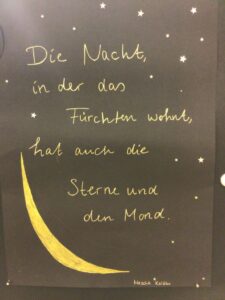 Die Nacht,
in der das
Fürchten wohnt,
hat auch die
Sterne und
den Mond.